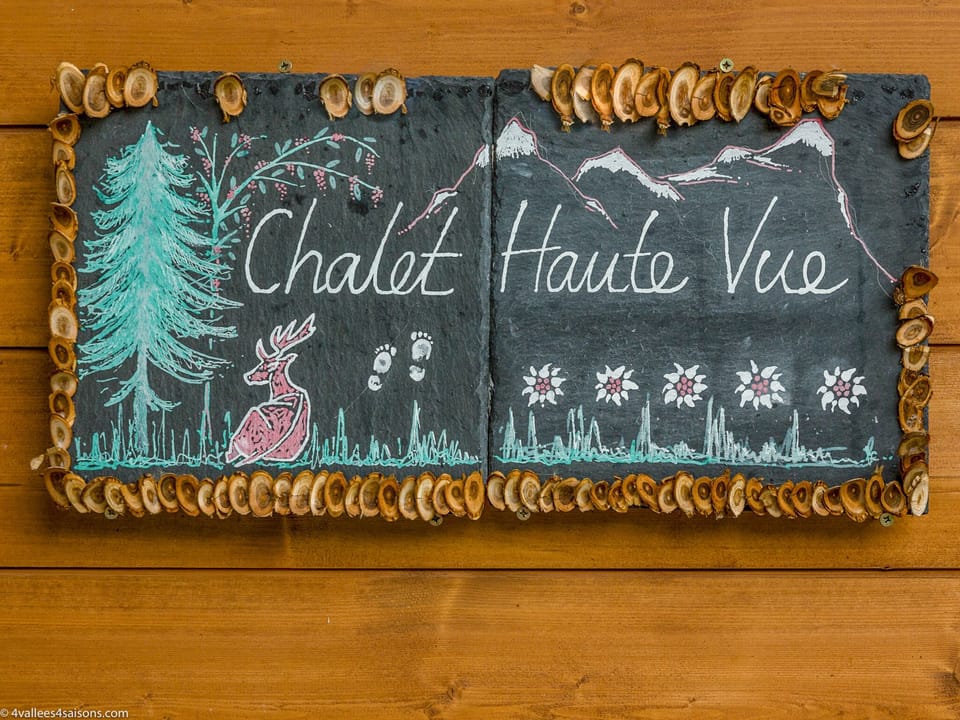 Chalet Haute Vue
© 4vallees4saisons.com